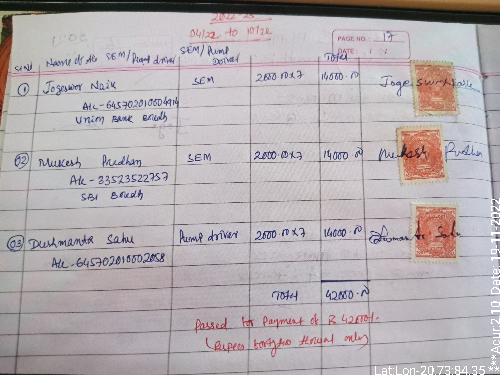 2022-23
04/22 to 10/22
PAGE NO : 17
DATE : / /
Sl.No Name of the SEM/Pump driver SEM/Pump Driver Total
① Jogeswor Naik SEM 2000.00x7 14000.00 Jogeswor Naik
A/c-645702010004914
Union Bank Boudh
02 Mukesh Pradhan SEM 2000.00x7 14000.00 Mukesh Pradhan
A/c-33523522757
SBI Boudh
03 Dushmanta Sahu Pump driver 2000.00x7 14000.00 Sahu
A/c-645702010002058
Total 42000.00
Passed for payment of Rs 42000/-
(Rupees fortytwo thousand only)
Lat:Lon-20.73:84.35
***Acur:2.10 Date: 19-11-2022